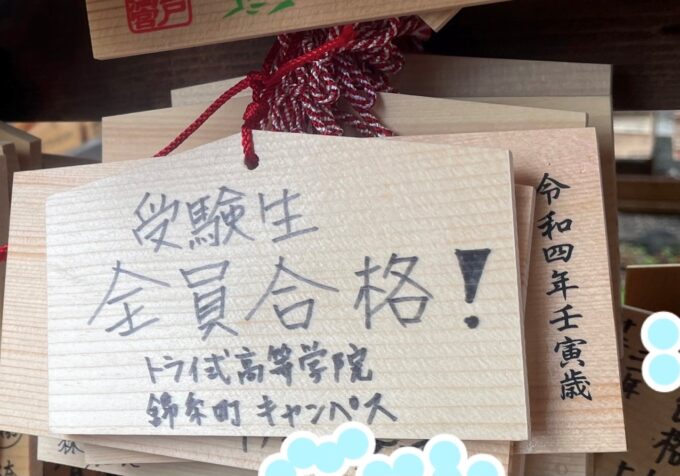 受験生
全員合格!
トライ式高等学院
錦糸町 キャンパス
令和四年壬寅歳